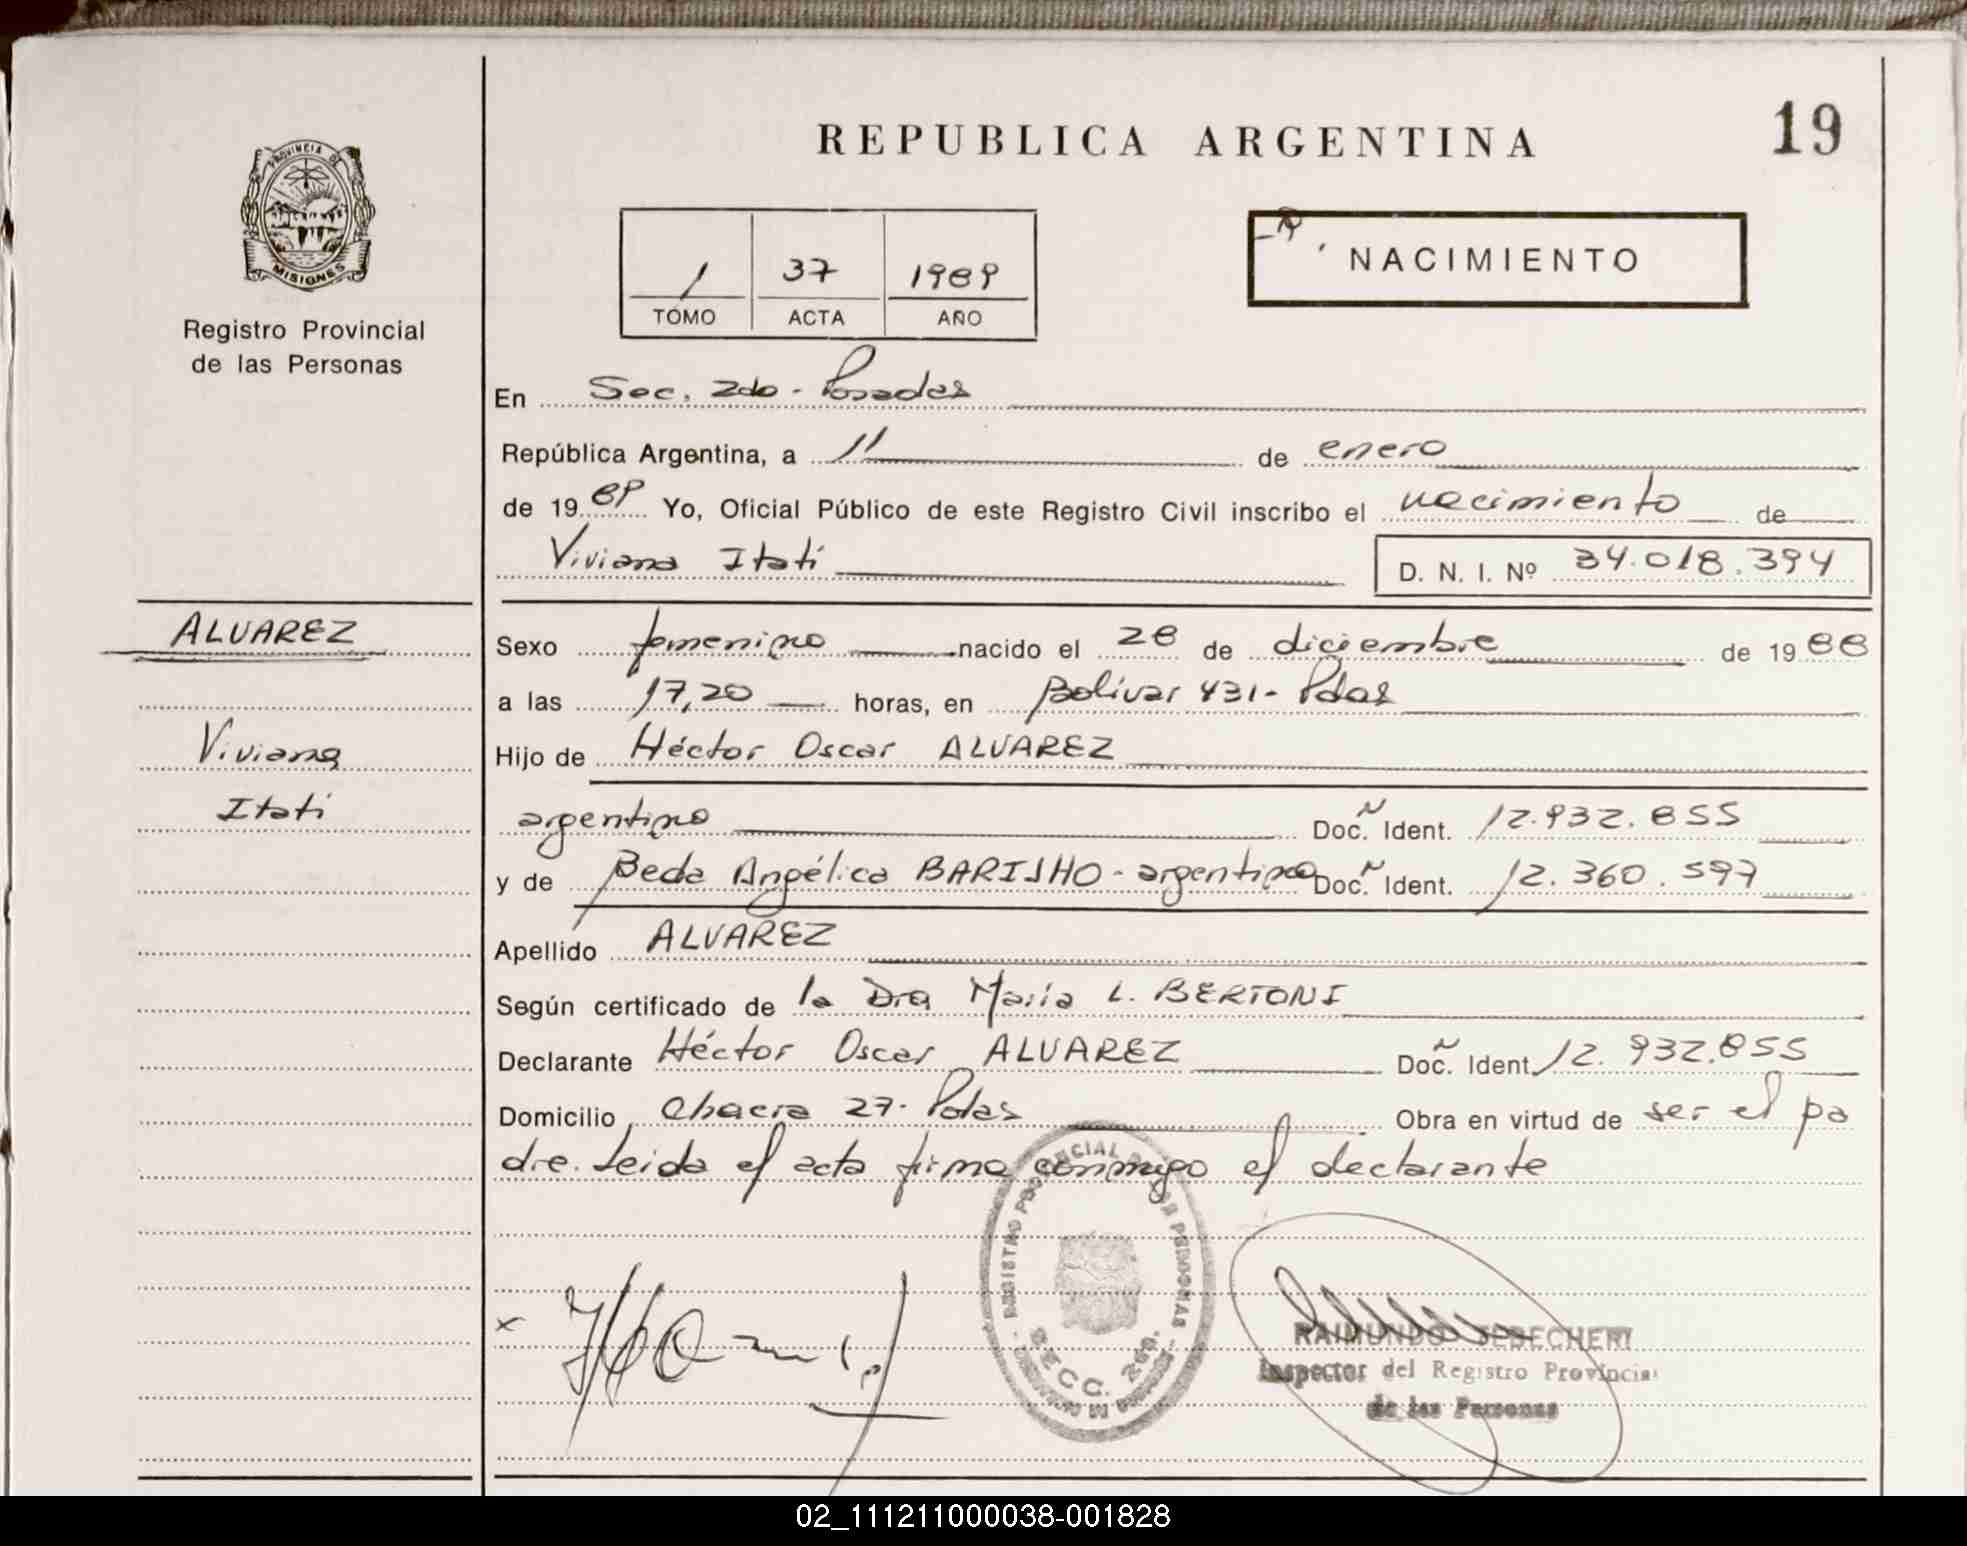 REPUBLICA ARGENTINA
19
PROVINCIA DE
MISIONES
Registro Provincial
de las Personas
1 37 1989
TOMO ACTA AÑO
NACIMIENTO
En Sec. 2do - Posadas
República Argentina, a 11 de enero
de 1989 Yo, Oficial Público de este Registro Civil inscribo el nacimiento de
Viviana Itatí
D. N. I. Nº 34.018.394
ALVAREZ
Viviana
Itatí
Sexo femenino nacido el 28 de diciembre de 1988
a las 17,20 horas, en Bolívar 431 - Pdas
Hijo de Héctor Oscar ALVAREZ
argentino Doc. Ident. 12.932.855
y de Beda Angélica - argentina Doc. Ident. 12.360.597
Apellido ALVAREZ
Según certificado de la Dra María L. BERTONI
Declarante Héctor Oscar ALVAREZ Doc. Ident. 12.932.855
Domicilio Chacra 27 - Pdas Obra en virtud de ser el pa
dre. Leida el acta firma conmigo el declarante
REGISTRO PROVINCIAL DE LAS PERSONAS
SECC. 2da.
RAIMUNDO
Inspector del Registro Provincial
de las Personas
02_111211000038-001828